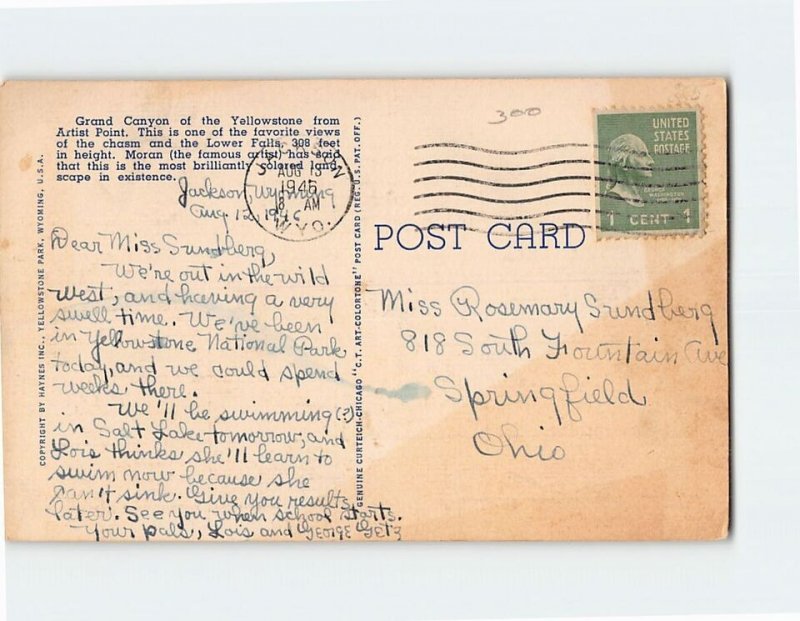 Grand Canyon of the Yellowstone from
Artist Point. This is one of the favorite views
of the chasm and the Lower Falls, 308 feet
in height. Moran (the famous artist) has said
that this is the most brilliantly colored land-
scape in existence.
Jackson, Wyoming
Aug 12, 1946
Dear Miss Sundberg,
We're out in the wild
west, and having a very
swell time. We've been
in Yellowstone National Park
today, and we could spend
weeks there.
We'll be swimming (?)
in Salt Lake tomorrow, and
Lois thinks she'll learn to
swim now because she
can't sink. Give you results
later. See you when school starts.
Your pals, Lois and George Getz
COPYRIGHT BY HAYNES INC., YELLOWSTONE PARK, WYOMING, U.S.A.
GENUINE CURTEICH-CHICAGO "C.T. ART-COLORTONE" POST CARD (REG. U.S. PAT. OFF.)
AUG 13
1946
8 AM
WYO.
300
UNITED
STATES
POSTAGE
GEORGE
WASHINGTON
1 CENT 1
POST CARD
Miss Rosemary Sundberg
818 South Fountain Ave
Springfield
Ohio